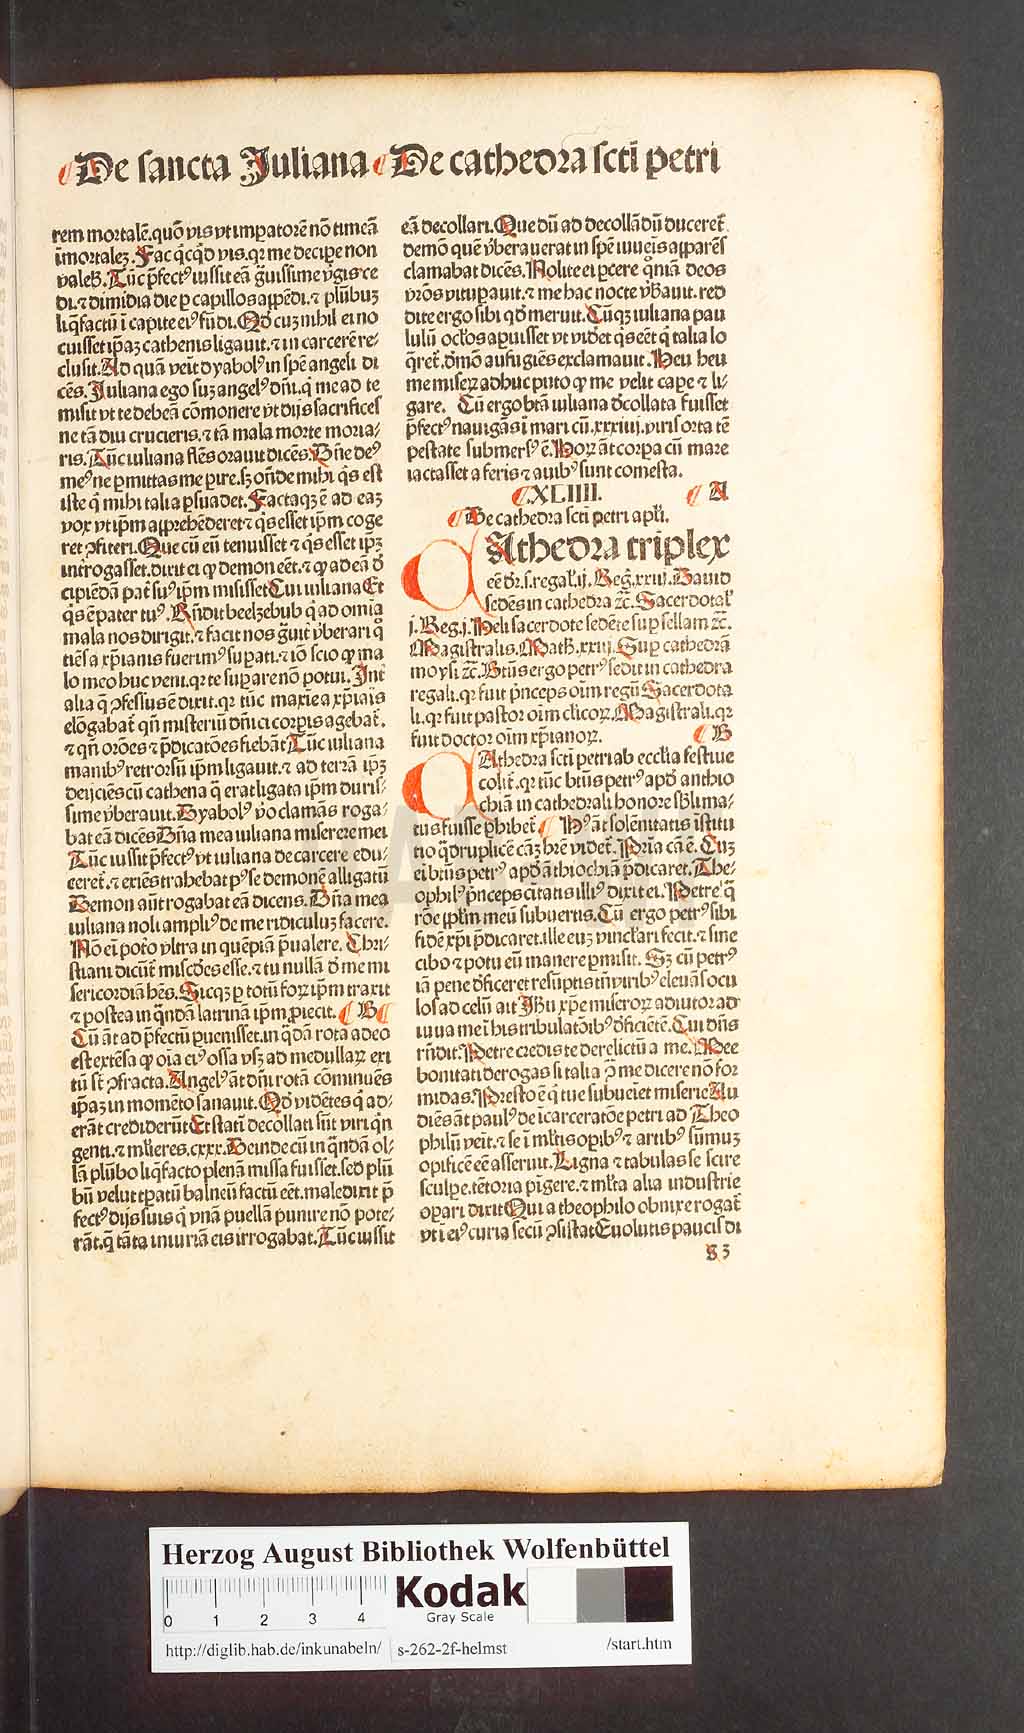 De sancta Juliana De cathedra scti petri
rem mortalē. quō vis vt imꝑatorē nō timeā
īmortalez. Fac q̇cq̇d vis. qr me decipe non
valeb. Tūc p̄fectꝰ iussit eā g̈uissime v̓gis ce
di. ⁊ dimidia die ꝑ capillos appēdi. ⁊ plūbuz
liq̄factū ī capite eiꝰ fūdi. Qd̓ cuz nihil ei no
cuisset ipaz cathenis ligauit. ⁊ in carcerē re⸗
clusit. Ad quā veīt dyabolꝰ in spē angeli di
cēs. Juliana ego suz angelꝰ dn̄i. q̇ me ad te
misit vt te debeā cōmonere vt dijs sacrifices
ne tā diu crucieris. ⁊ tā mala morte moria⸗
ris. Tūc iuliana flēs orauit dicēs. Dn̄e deꝰ
meꝰ ne ꝑmittas me ꝑire. sz on̄de mihi q̇s est
iste q̇ mihi talia ꝑsuadet. Factaqz ē ad eaz
vox vt ip̄m apprehēderet ⁊ q̇s esset ip̄m coge
ret ꝯfiteri. Que cū eū tenuisset ⁊ q̇s esset ipz
int̓rogasset. dixit ei ꝙ demon eēt. ⁊ ꝙ ad eā d̓
cipiēdā pat̓ suꝰ ip̄m misisset Cui iuliana Et
q̇s ē pater tuꝰ. Rn̄dit beelzebub q̇ ad omīa
mala nos dirigit. ⁊ facit nos g̈uit̓ v̓berari q̈
tiēs a xp̄ianis fuerimꝰ suꝑati. ⁊ iō scio ꝙ ma
lo meo huc veni. qr te suꝑare nō potui. Int̓
alia q̄ ꝯfessus ē dixit. qr tūc maxīe a xp̄iaīs
elōgabat̓ qn̄ misteriū dn̄ici corꝑis agebat̓.
⁊ qn̄ orōes ⁊ p̄dicatōes fiebāt Tūc iuliana
manibꝰ retrorsū ip̄m ligauit. ⁊ ad terrā ipz
deijciēs cū cathena q̄ erat ligata ip̄m duris⸗
sime v̓berauit. Dyabolꝰ v̓o clamās roga⸗
bat eā dicēs Dn̄a mea iuliana miserere mei
Tūc iussit p̄fectꝰ vt iuliana de carcere edu⸗
ceret̓. ⁊ exiēs trahebat pꝰ se demonē alligatū
Demon aūt rogabat eā dicens. Dn̄a mea
iuliana noli ampliꝰ de me ridiculuz facere.
Nō eī poto̓ vltra in quēpiā p̄ualere. Chri⸗
stiani dicūt̓ misc̓des esse. ⁊ tu nullā d̓ me mi
sericordiā hēs. Sicqz ꝑ totū foꝝ ip̄m traxit
⁊ postea in q̈ndā latrinā ip̄m ꝓiecit. B
Cū āt ad p̄fectū ꝑuenisset. in q̈dā rota adeo
est extēsa ꝙ oīa eiꝰ ossa vsz ad medullaꝝ exi
tū st̄ ꝯfracta. Angelꝰ āt dn̄i rotā cōminuēs
ipaz in momēto sanauit. Qd̓ vidētes q̇ ad⸗
erāt crediderūt Et statī decollati sūt viri q̇n
genti. ⁊ mlieres. cxxx. Deinde cū in q̈ndā ol⸗
lā plūbo liq̄facto plenā missa fuisset. sed plū
bū velut tꝑatū balneū factū eēt. maledixit p̄
fectꝰ dijs suis q̇ vnā puellā punire nō pote⸗
rāt. q̄ tāta iniuriā eis irrogabat. Tūc iussit
eā decollari. Que dū ad decollādū duceret̓.
demō quē v̓berauerat in spē iuueīs apparēs
clamabat dicēs. Nolite ei ꝑcere qn̄iā deos
vr̄os vituꝑauit. ⁊ me hac nocte v̓bauit. red
dite ergo sibi qd̓ meruit. Cūqz iuliana pau
lulū oclos aꝑuisset vt videt̓ q̇s eēt q̇ talia lo
q̄ret̓. demō aufugiēs exclamauit. Heu heu
me miseꝝ adhuc puto ꝙ me velit caꝑe ⁊ li⸗
gare. Cū ergo btā iuliana d̓collata fuisset
p̄fectꝰ nauigās ī mari cū. xxxiiij. viris orta tē
pestate submersꝰ ē. Hoꝝ āt corpa cū mare
iactasset a feris ⁊ auibꝰ sunt comesta.
XLIIII. A
De cathedra scti petri apli.
Athedra triplex
eē dr̄. s. regal̓. ij. Reg̓. xxiij. Dauid
sedēs in cathedra ⁊c̄. Sacerdotal̓
j. Reg. j. Heli sacerdote sedēte suꝑ sellam ⁊c̄.
Magistralis. Math. xxiij. Suꝑ cathedrā
moysi ⁊c̄. Btūs ergo petrꝰ sedit in cathedra
regali. qr fuit p̄nceps oīm regū Sacerdota
li. qr fuit pastor oīm clicoꝝ. Magistrali. qr
fuit doctor oīm xp̄ianoꝝ. B
Athedra scti petri ab ecclīa festiue
colit̓. qr tūc btūs petrꝰ apd̓ anthio
chiā in cathedrali honore sblima⸗
tus fuisse ꝑhibet̓ Hꝰ āt solēnitatis īstitu
tio q̈druplicē cāz hr̄e videt̓. Pria cā ē. Cuz
ei btūs petrꝰ apd̓ āthiochiā p̄dicaret. The⸗
ophilꝰ p̄nceps citatis illiꝰ dixit ei. Petre q̈
rōe pplm meū subuertis. Cū ergo petrꝰ sibi
fidē xp̄i p̄dicaret. ille euz vinclari fecit. ⁊ sine
cibo ⁊ potu eū manere ꝑmisit. Sz cū petrꝰ
iā pene d̓ficeret resūptis tn̄ viribꝰ eleuās ocu
los ad celū ait Jhu xp̄e miseroꝝ adiutor ad
iuua me ī his tribulatōibꝰ d̓ficiētē. Cui dn̄s
rn̄dit. Petre credis te derelictū a me. Mee
bonitati derogas si talia ꝯ me dicere nō for
midas. Presto ē q̇ tue subueīet miserie Au
diēs āt paulꝰ de īcarceratōe petri ad Theo
philū veīt. ⁊ se ī mltis oꝑibꝰ ⁊ artibꝰ sūmuz
opificē eē asseruit. Ligna ⁊ tabulas se scire
sculpe. tētoria pīgere. ⁊ mlta alia industrie
oꝑari dixit Qui a theophilo obnixe rogat̓
vt ī eiꝰ curia secū ꝯsistat Euolutis paucis di
g3
Herzog August Bibliothek Wolfenbüttel
0 1 2 3 4
Kodak
Gray Scale
http://diglib.hab.de/inkunabeln/ s-262-2f-helmst /start.htm